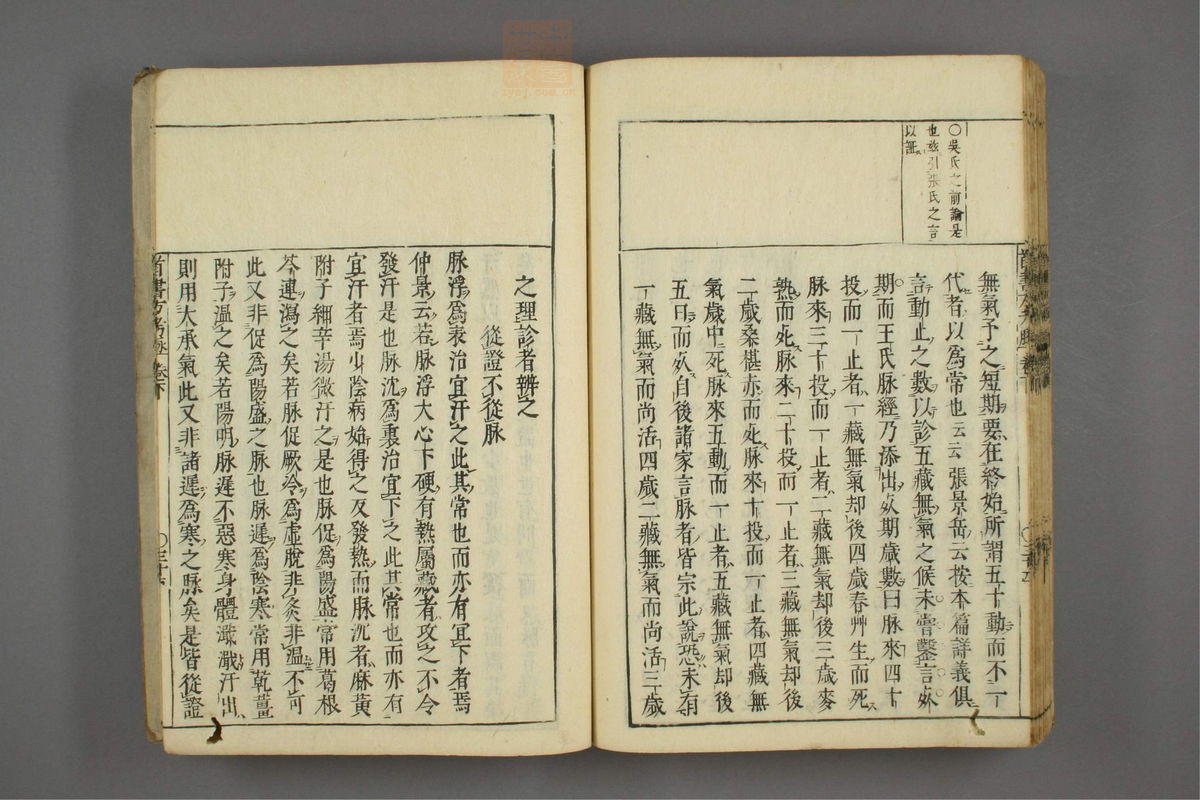 〇吳氏之前論是
也玆引張氏之言
以証
無氣予之短期要在終始所謂五十動而不一
代者以爲常也云云張景岳云按本篇詳義俱
言動止之數以診五藏無氣之候未嘗鑿言死
期而王氏脉經乃添出死期歲數曰脉來四十
投而一止者一藏無氣却後四歲春艸生而死
脉來三十投而一止者二藏無氣却後三歲麥
熟而死脉來二十投而一止者三藏無氣却後
二歲桑椹赤而死脉來十投而一止者四藏無
氣歲中死脉來五動而一止者五藏無氣却後
五日而死自後諸家言脉者皆宗此說恐未有
一藏無氣而尚活四歲二藏無氣而尚活三歲
之理診者辨之
從證不從脉
脉浮爲表治宜汗之此其常也而亦有宜下者焉
仲景云若脉浮大心下硬有熱屬藏者攻之不令
發汗是也脉沈爲裏治宜下之此其常也而亦有
宜汗者焉少陰病始得之反發熱而脉沈者麻黄
附子細辛湯微汗之是也脉促爲陽盛常用葛根
芩連瀉之矣若脉促厥冷爲虛脫非灸非溫不可
此又非促爲陽盛之脉也脉遲爲陰寒常用乾薑
附子溫之矣若陽明脉遲不惡寒身體濈濈汗出
則用大承氣此又非諸遲爲寒之脉矣是皆從證
醫書方考脉 卷下
〇三十六